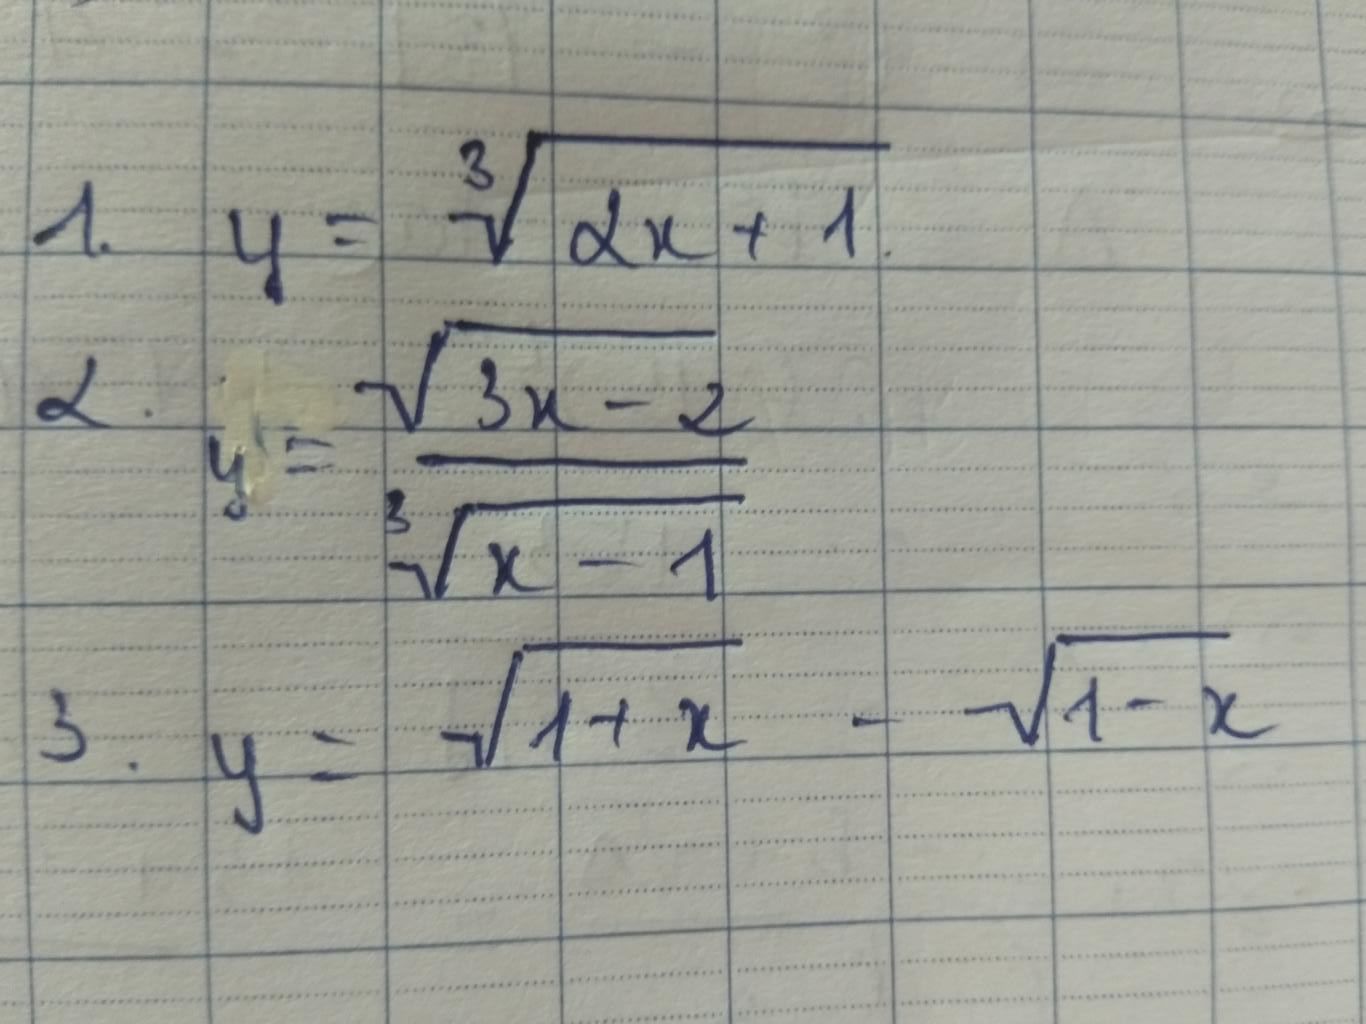 1. y = ∛(2x + 1)
2. y = √(3x - 2) / ∛(x - 1)
3. y = √(1 + x) - √(1 - x)